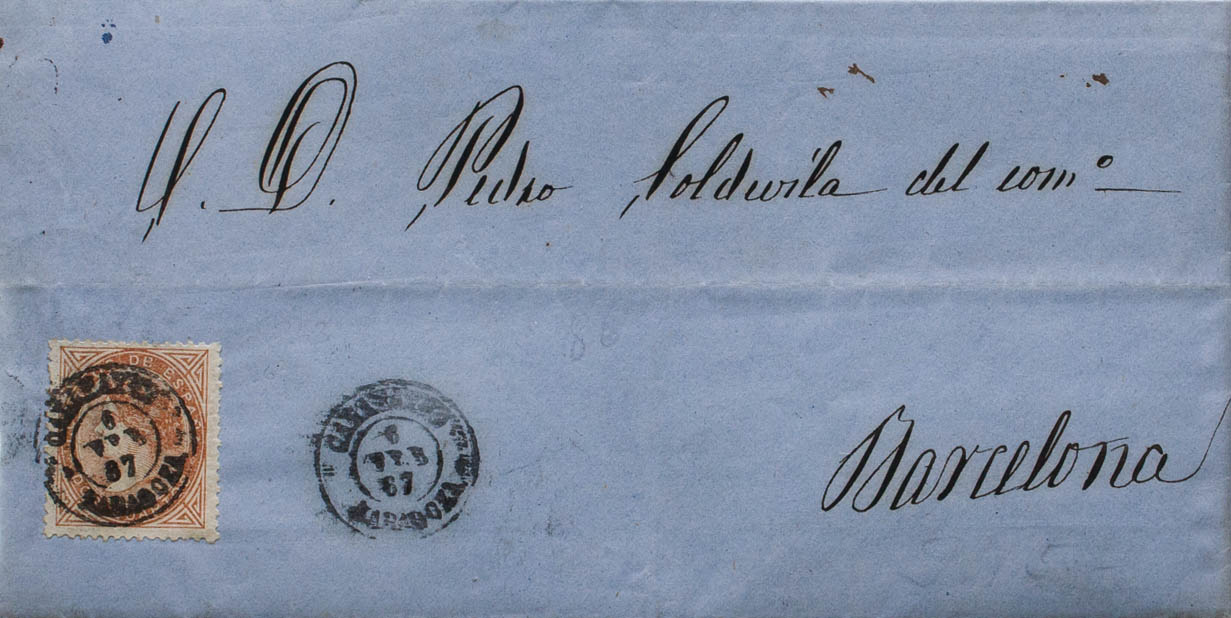 S. D. Pedro Soldevila del comº
Barcelona
DE ESP
6
FEB
67
ZARAGOZA
6
FEB
67
ZARAGOZA